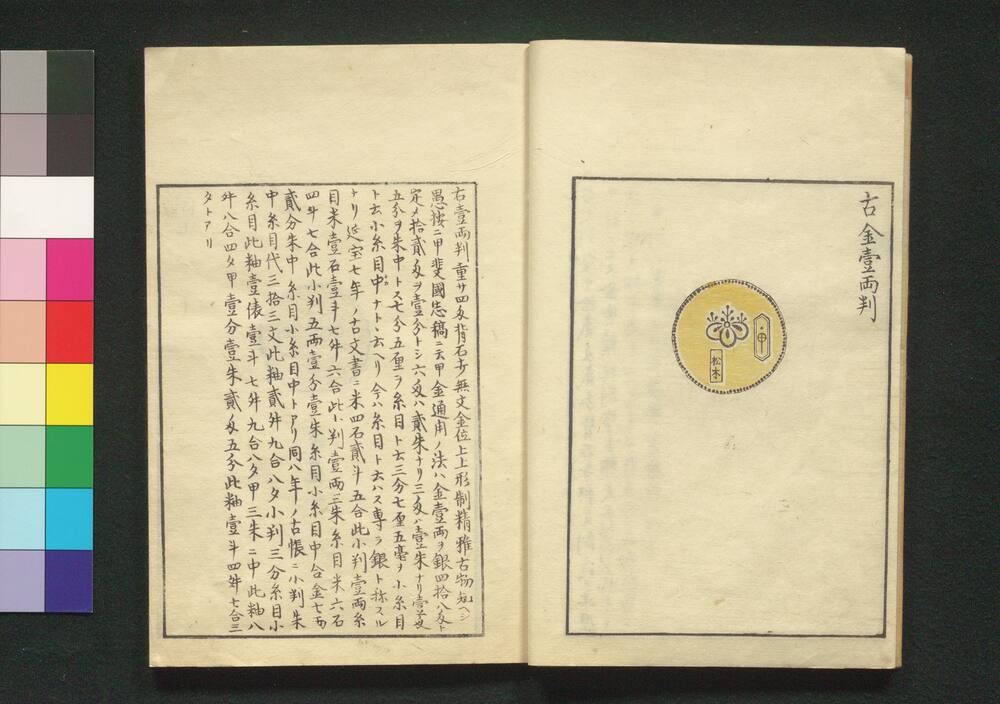 古金壹両判
甲
松木
右壹両判重サ四匁背石キ無文金位上上形制精雅古物見ヘシ
愚按ニ甲斐國志稿ニ云甲金通用ノ法ハ金壹両ヲ銀四拾八匁ト
定メ拾貳匁ヲ壹分トシ六匁ハ貳朱ナリ三匁ハ壹朱ナリ壹匁
五分ヲ朱中トス七分五厘ヲ糸目ト云三分七厘五毫ヲ小糸目
ト云小糸目中ナトト云ヘリ今ハ糸目ト云ハス専ラ銀ト称スル
トリ延宝七年ノ古文書ニ米四石貳斗五合此小判壹両糸
目米壹石壹斗七舛六合此小判壹両三朱糸目米六石
四斗七合此小判五両壹分壹朱糸目小糸目中合金七両
貳分朱中糸目小糸目中トアリ同八年ノ古帳ニ小判朱
中糸目代三拾三文此籾貳舛九合八夕小判三分糸目小
糸目此籾壹俵壹斗七舛九合八夕甲三朱ニ中此籾八
舛八合四夕甲壹分壹朱貳匁五分此籾壹斗四舛七合三
夕トアリ